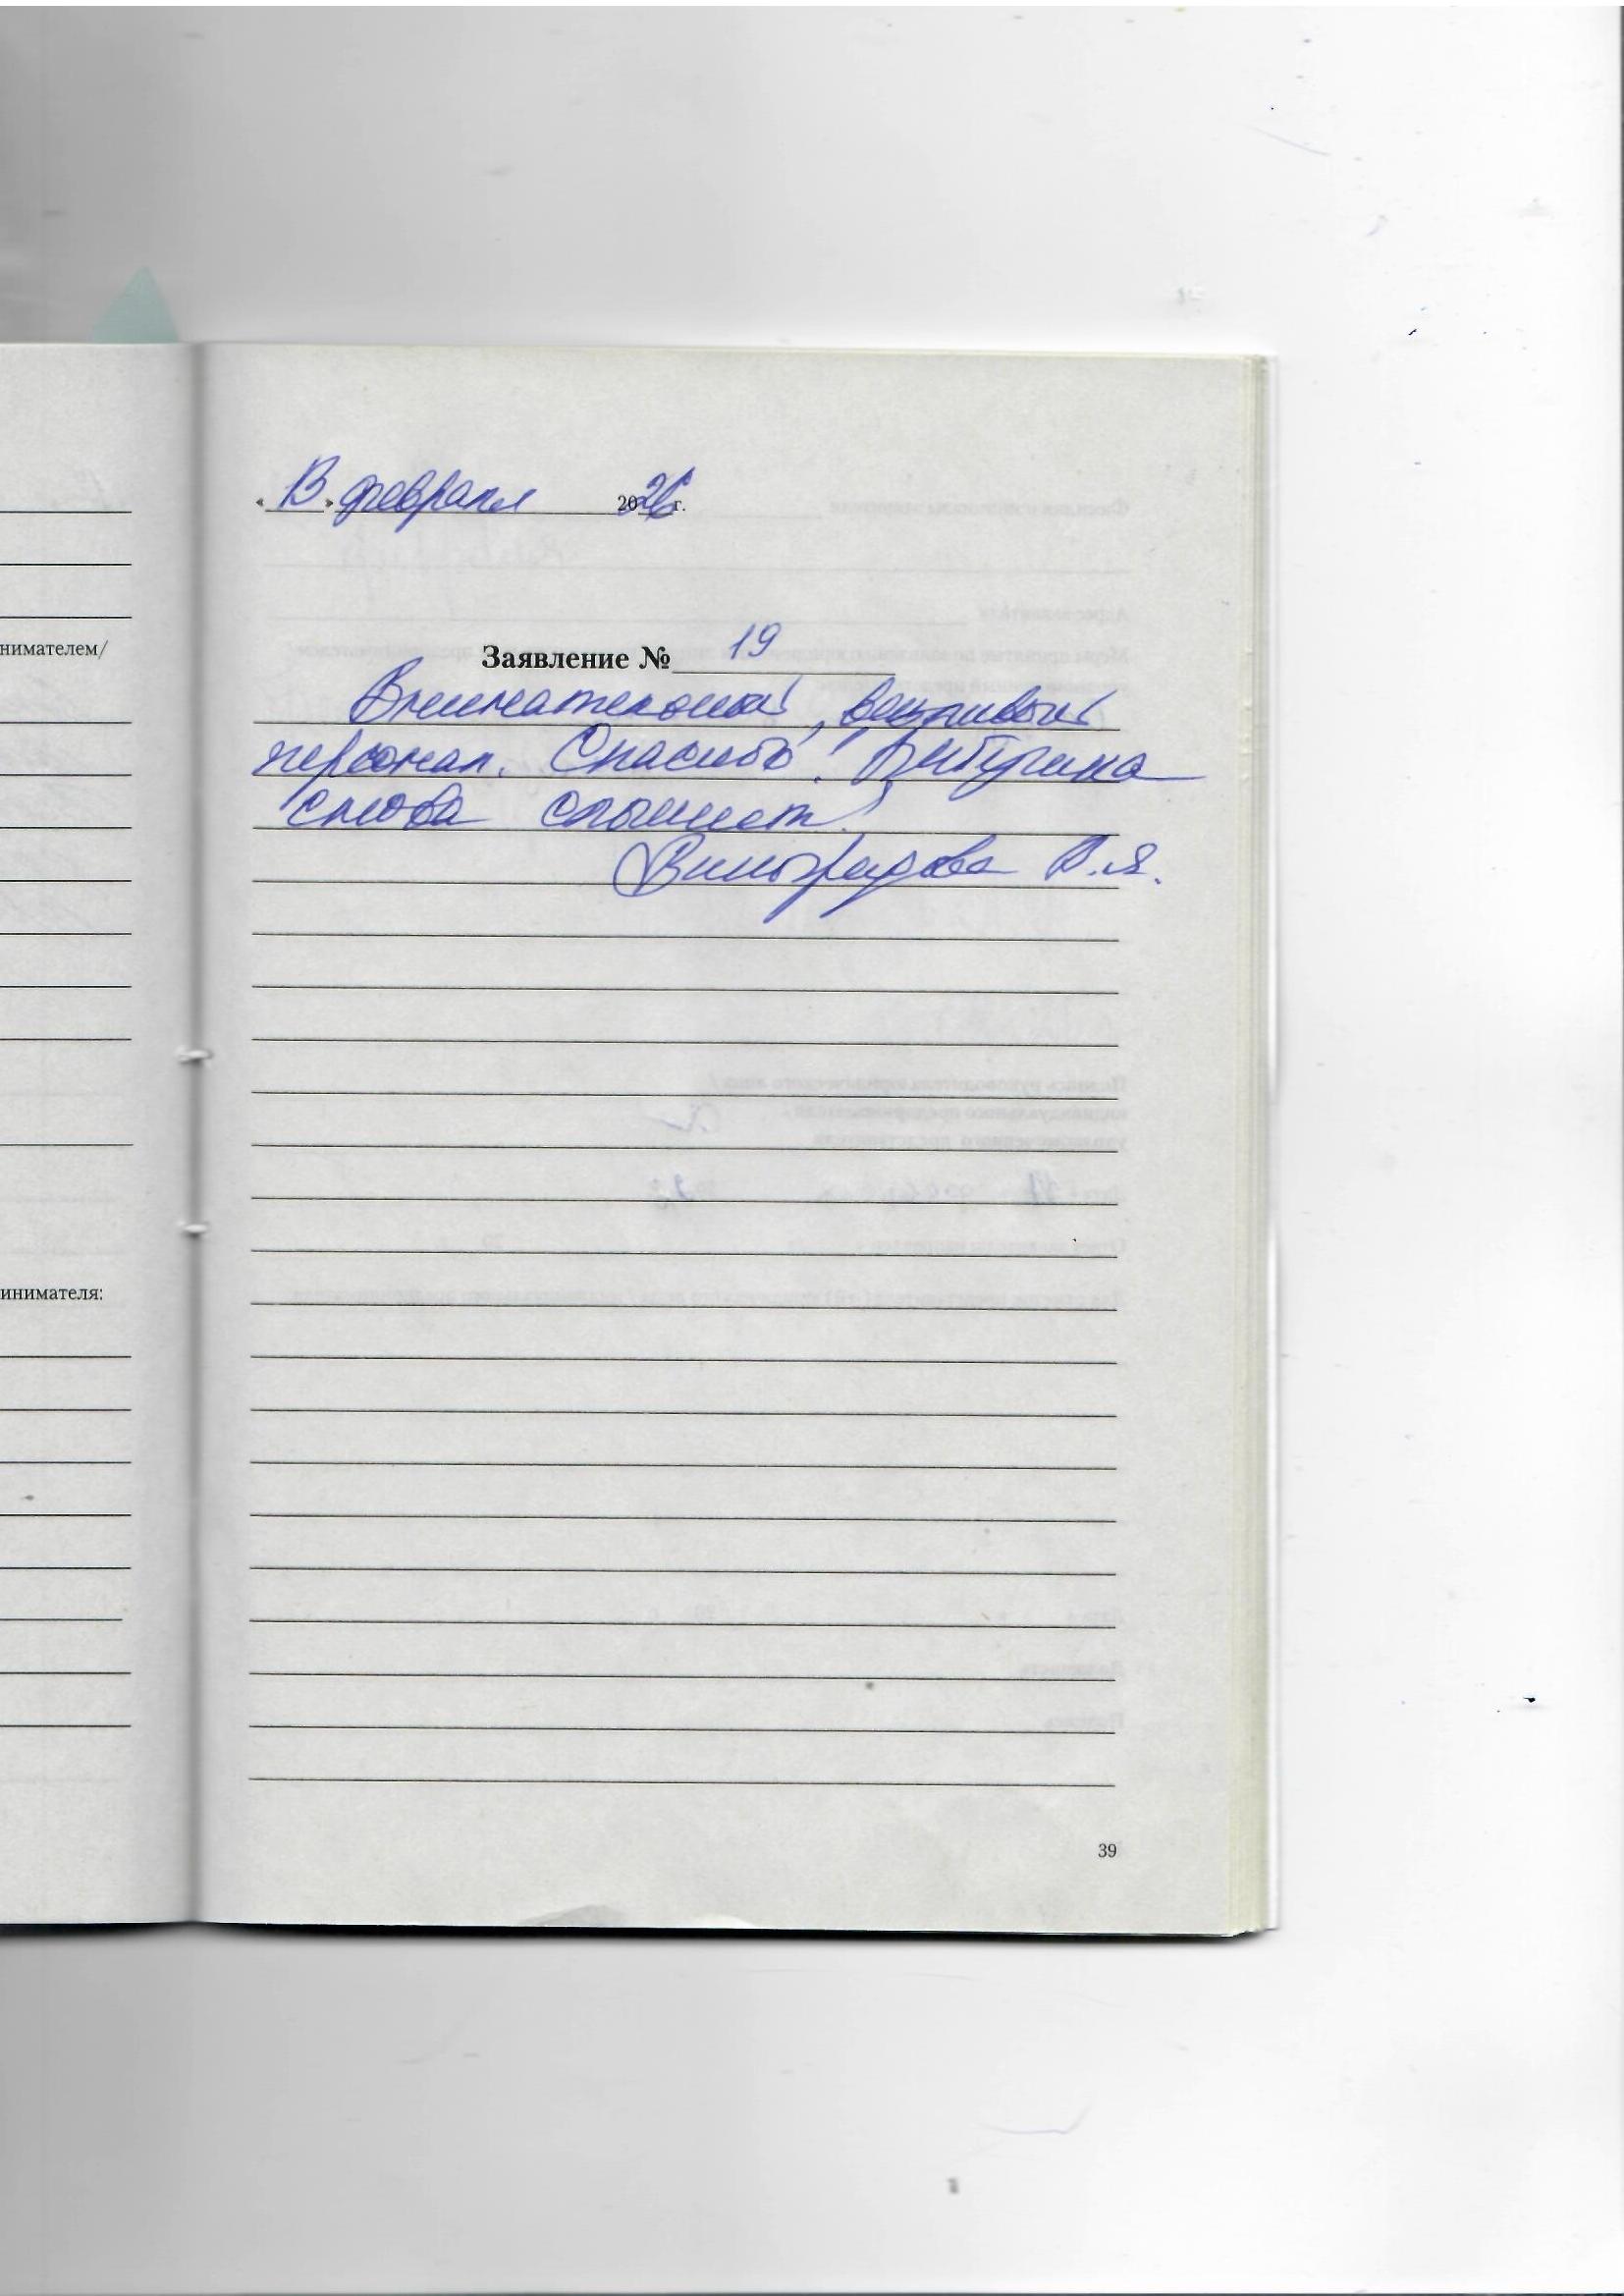 нимателем/
инимателя:
«13» февраля 2026 г.
Заявление № 19
Внимательный, вежливый
персонал. Спасибо! Бабушка
снова слышит!
Виноградова В.Я.
39